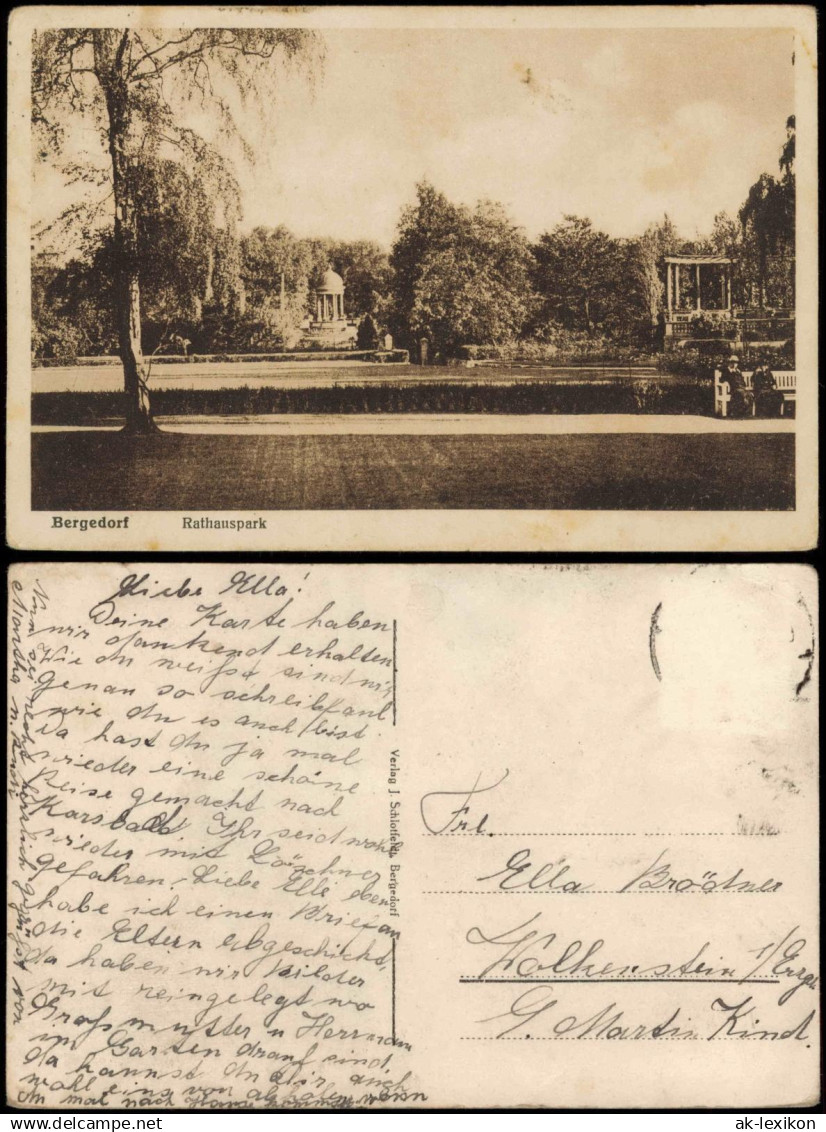 Bergedorf Rathauspark
Liebe Ella!
Deine Karte haben
wir dankend erhalten.
Wie du weißt sind wir
genau so schreibfaul
wie du es auch bist.
Da hast du ja mal
wieder eine schöne
Reise gemacht nach
Karsbad. Ihr seid wohl
wieder mit
gefahren. Liebe Elle eben
habe ich einen Brief an
die Eltern abgeschickt,
da haben wir Bilder
mit reingelegt wo
Großmutter u Herrmann
im Garten drauf sind,
da kannst du dir auch
wohl eins von abholen wenn
du mal nach Hause kommst.
Nun sei recht herzlich gegrüßt von
Martha u.
Verlag J. Schloffeldt, Bergedorf
Frl.
Ella Brödner
Wolkenstein i/Erzg.
G. Martin Kind.
ak-lexikon.com